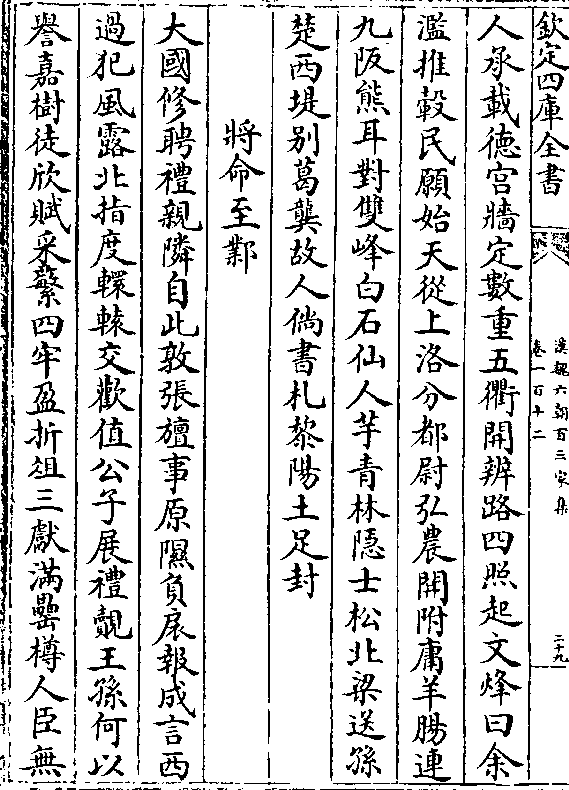 欽定四庫全書
漢魏六朝百三家集
卷一百十二
二十九
人承載德宫牆定數重五衢開辨路四照起文烽曰余
濫推轂民願始天從上洛分都尉弘農開附庸羊腸連
九阪熊耳對雙峰白石仙人芋青林隠士松北梁送孫
楚西堤别葛龔故人倘書札黎陽土足封
將命至鄴
大國修聘禮親隣自此敦張旜事原隰負扆報成言西
過犯風露北指度轘轅交歡值公子展禮覿王孫何以
譽嘉樹徒欣賦采蘩四牢盈折俎三獻滿罍樽人臣無